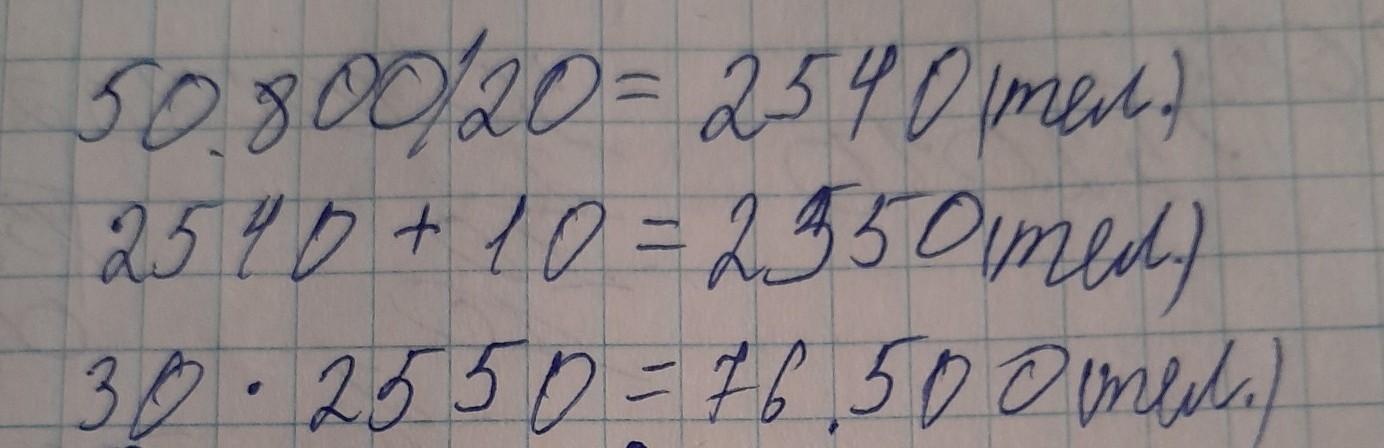 50.800/20 = 2540 (тел.)
2540 + 10 = 2550 (тел.)
30 · 2550 = 76.500 (тел.)